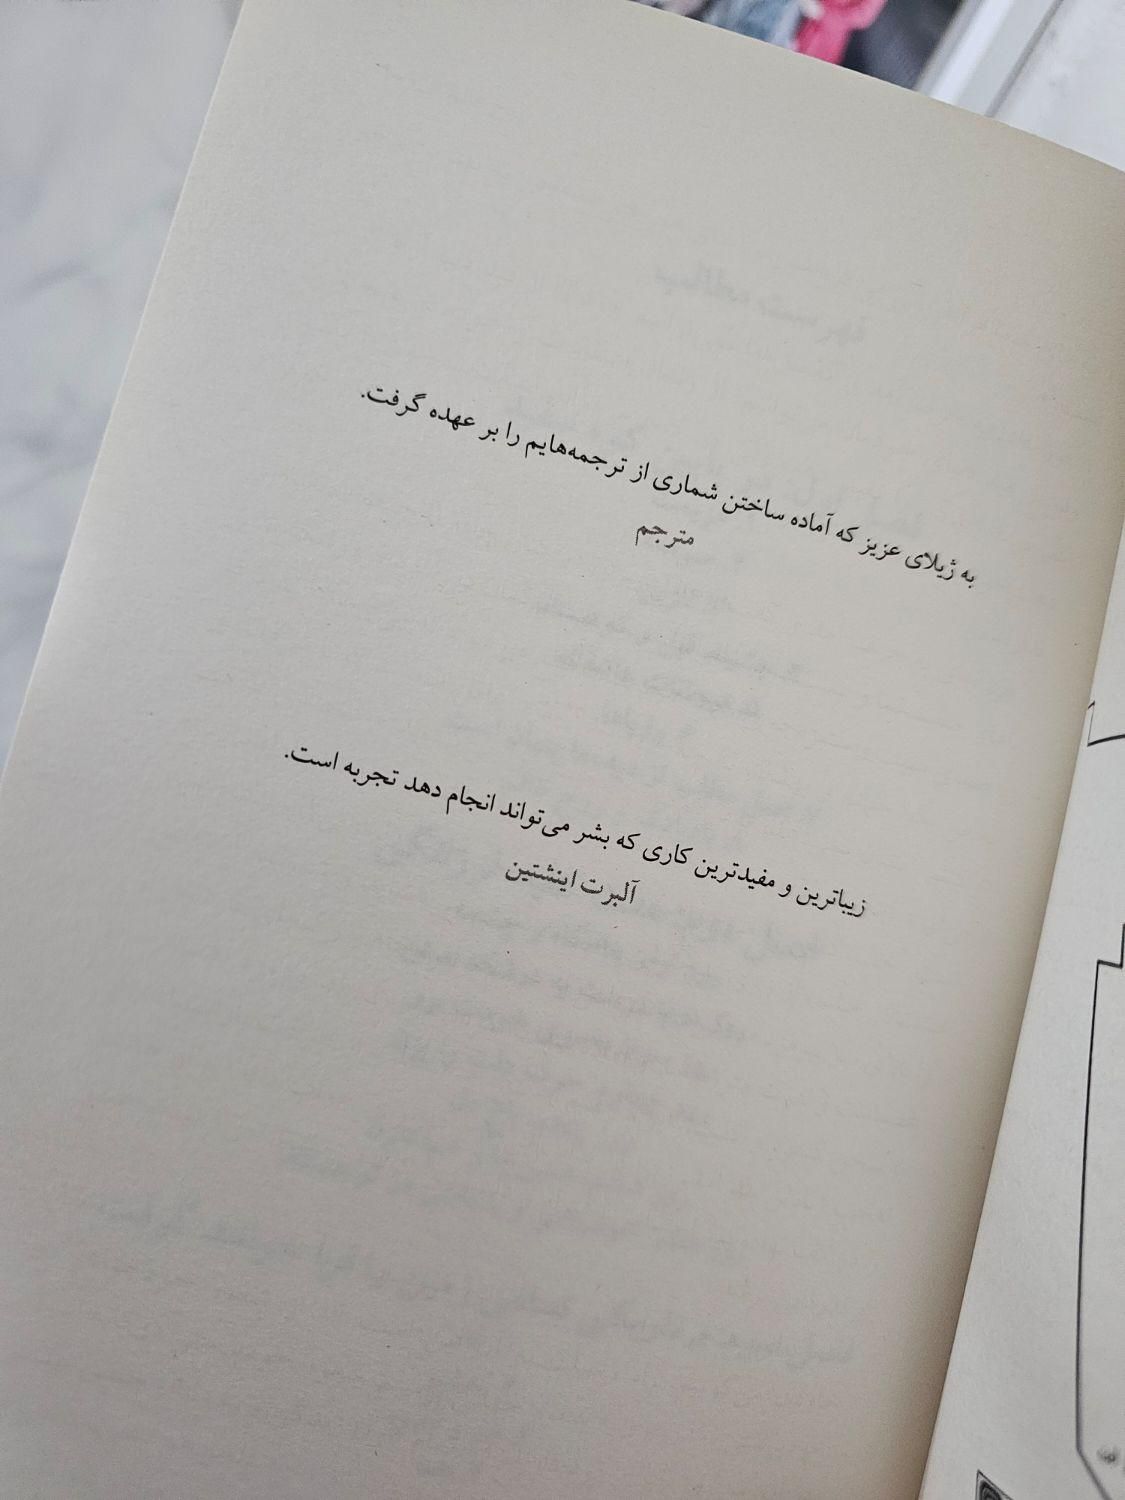 به ژیلای عزیز که آماده ساختن شماری از ترجمه‌هایم را بر عهده گرفت.
مترجم
زیباترین و مفیدترین کاری که بشر می‌تواند انجام دهد تجربه است.
آلبرت اینشتین